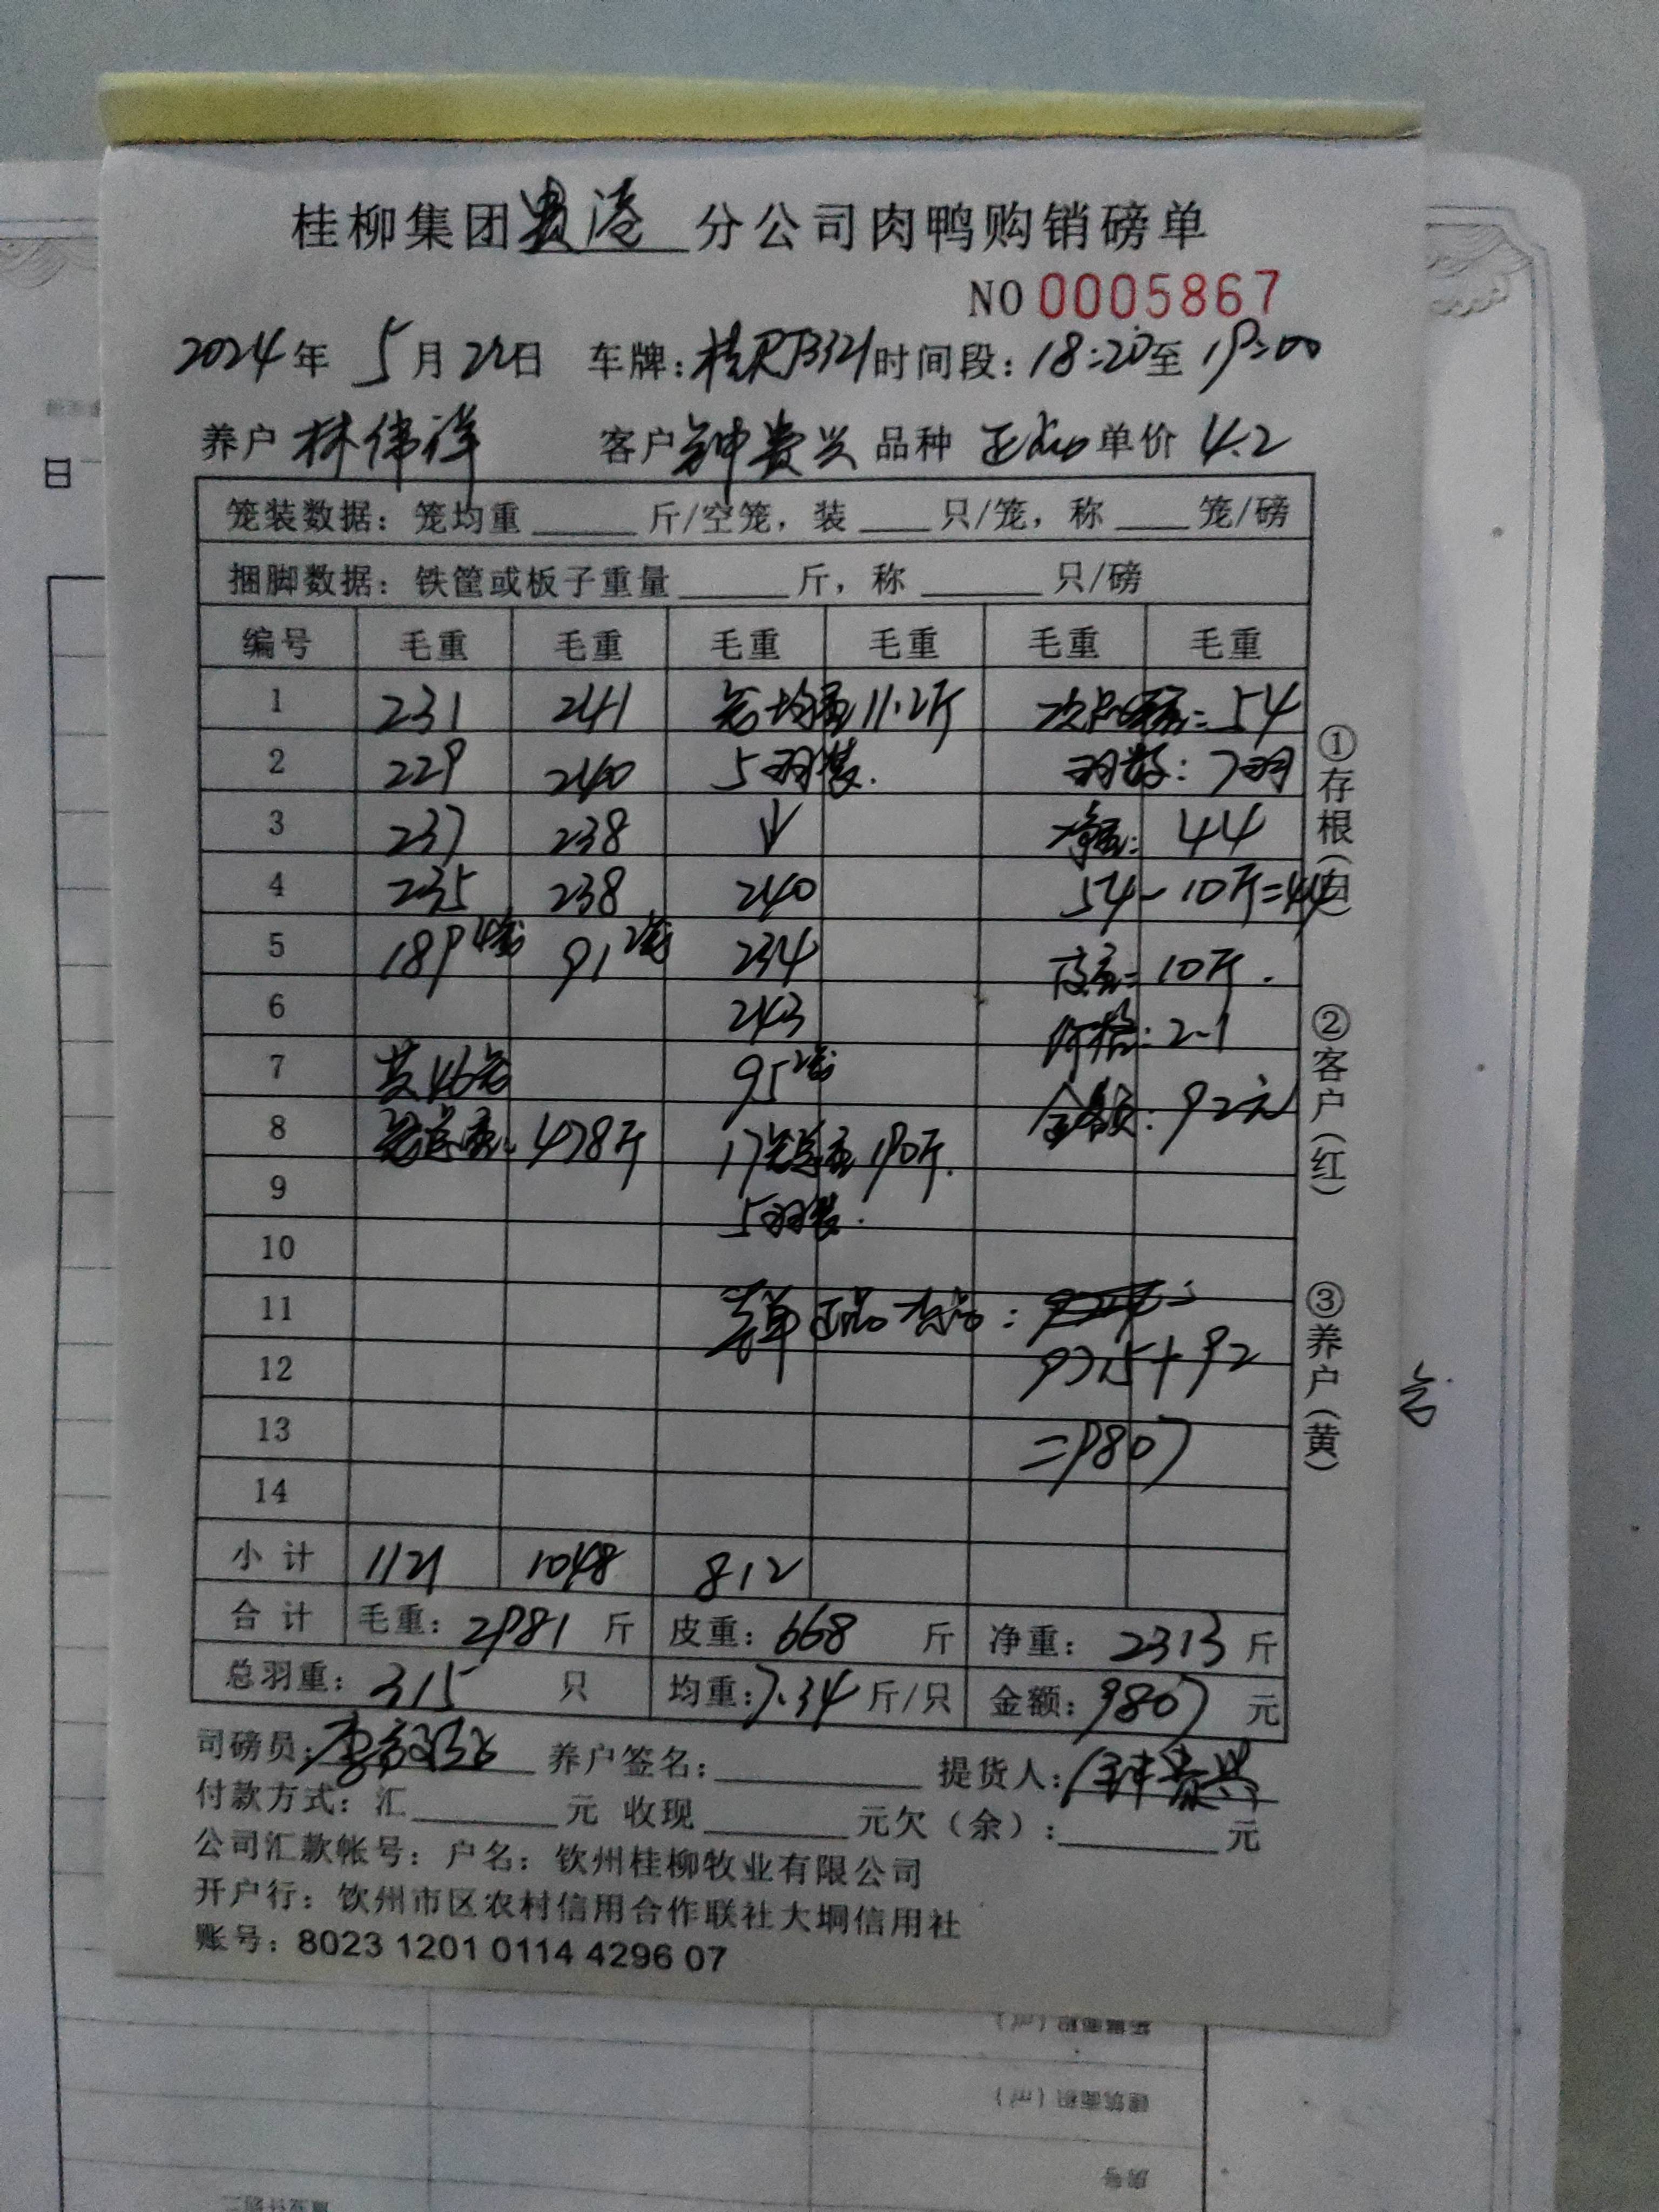 桂柳集团贵港分公司肉鸭购销磅单
NO 0005867
2024年 5月22日 车牌: 时间段:18:20至19:00
养户 林伟祥 客户 钟贵兴 品种 正品 单价 4.2
笼装数据:笼均重____斤/空笼,装____只/笼,称____笼/磅
捆脚数据:铁筐或板子重量____斤,称____只/磅
编号 毛重 毛重 毛重 毛重 毛重 毛重
1 231 241 笼均重11.2斤 次品毛重:54
2 229 240 5羽装. 羽数:7羽
3 237 238 ↓ 净重:44
4 235 238 240 54-10斤=44
5 189 4笼 91 2笼 234 皮重:10斤.
6 243 价格:2.1
7 共46笼 95 2笼 金额:92元
8 笼总重:478斤 17笼总重190斤.
9 5羽装.
10
11 正品次品:
12 9715+92
13 =9807
14
小计 1121 1048 812
合计 毛重:2981斤 皮重:668斤 净重:2313斤
总羽重:315只 均重:7.34斤/只 金额:9807元
司磅员: 养户签名: 提货人:钟贵兴
付款方式:汇____元 收现____元欠(余):____元
公司汇款帐号:户名:钦州桂柳牧业有限公司
开户行:钦州市区农村信用合作联社大垌信用社
账号:8023 1201 0114 4296 07
①存根(白)
②客户(红)
③养户(黄)
日